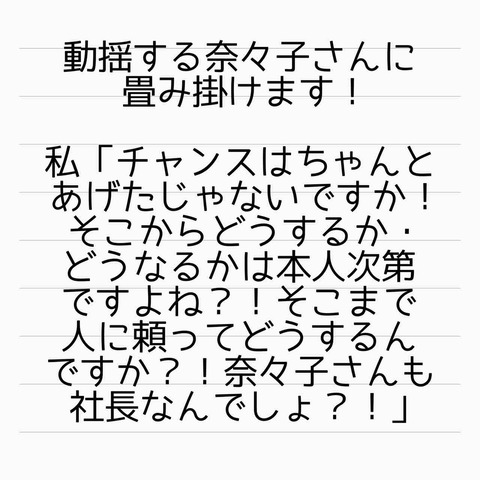 動揺する奈々子さんに
畳み掛けます！
私「チャンスはちゃんと
あげたじゃないですか！
そこからどうするか・
どうなるかは本人次第
ですよね？！そこまで
人に頼ってどうするん
ですか？！奈々子さんも
社長なんでしょ？！」